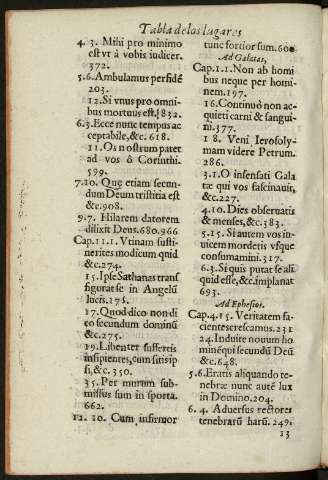 Tabla delos lugares
4. 3. Mihi pro minimo
est vt à vobis iudicer.
372.
5.6. Ambulamus per fidẽ
203.
12. Si vnus pro omni-
bus mortuus est. 832.
6.3. Ecce nunc tempus ac
ceptabile, &c. 618.
11. Os nostrum patet
ad vos ô Corinthi.
599.
7.10. Que etiam secun-
dum Deum tristitia est
&c. 908.
9.7. Hilarem datorem
dilixit Deus. 680. 966
Cap. 11.1. Vtinam susti-
nerites modicum quid
&c. 274.
15. Ipse Sathanas trans
figurat se in Angelũ
lucis. 176.
17. Quod dico non di
co secundum dominũ
&c. 275.
19. Libenter suffertis
insipientes, cum sitis ip
si, &c. 350.
35. Per murum sub-
missus sum in sporta.
662.
12. 10. Cum infirmor
tunc fortior sum. 60
Ad Galatas,
Cap. 1.1. Non ab homi
bus neque per homi-
nem. 197.
16. Continuò non ac-
quieti carni & sangui-
ni. 377.
18. Veni Ierosoly-
mam videre Petrum.
286.
3.1. O insensati Gala
tæ qui vos fascinauit,
&c. 227.
4.10. Dies obseruatis
& menses, &c. 383.
5.15. Si autem vos in-
uicem mordetis vsque
consumamini. 317.
6.3. Si quis putat se ali
quid esse, &c. implanat
693.
Ad Ephesios.
Cap. 4.15. Veritatem fa-
cientes crescamus. 231
24. Induite nouum ho
minẽ qui secundũ Deũ
&c. 648.
5.6. Eratis aliquando te-
nebræ nunc autẽ lux
in Domino. 204.
6. 4. Aduersus rectores
tenebrarũ harũ. 249.
13